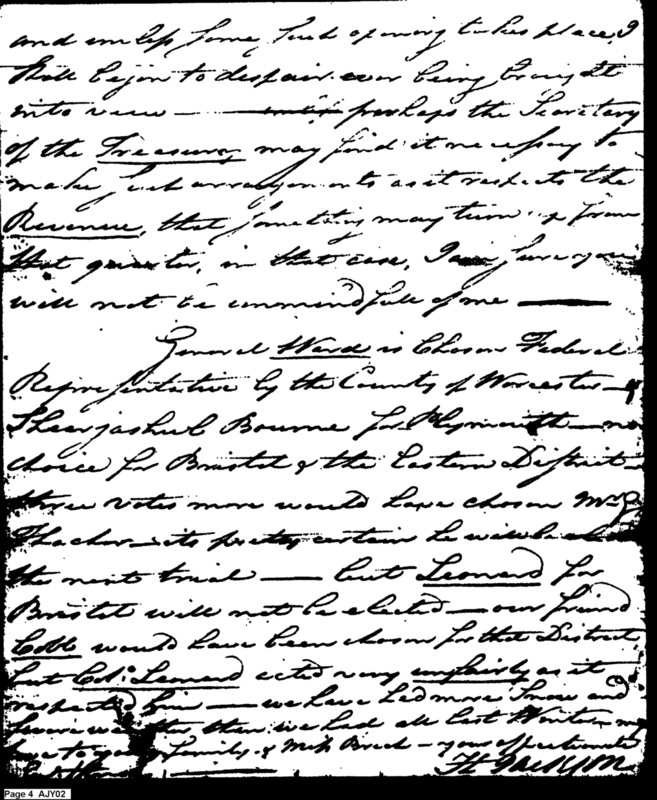 and unless some such opening takes place, I
shall begin to despair ever being brought
into view — perhaps the Secretary
of the Treasury may find it necessary to
make such arrangements as it respects the
Revenue, that something may turn up from
that quarter, in that case, I am sure you
will not be unmindfull of me —
General Ward is Chosen Federal
Representative by the County of Worcester — &
Shearjashub Bourne for Plymouth — no
choice for Bristol & the Eastern District —
three votes more would have chosen Mr. G
Thacher — its pretty certain he will be
the next trial — but Leonard for
Bristol will not be elected — our friend
Cobb would have been chosen for that District
but Col. Leonard acted very unfairly as it
respected him — we have had more Snow and
severe weather than we had all last Winter — my
love to your family & Miss Breck — your affectionate
H Jackson
Page 4 AJY02